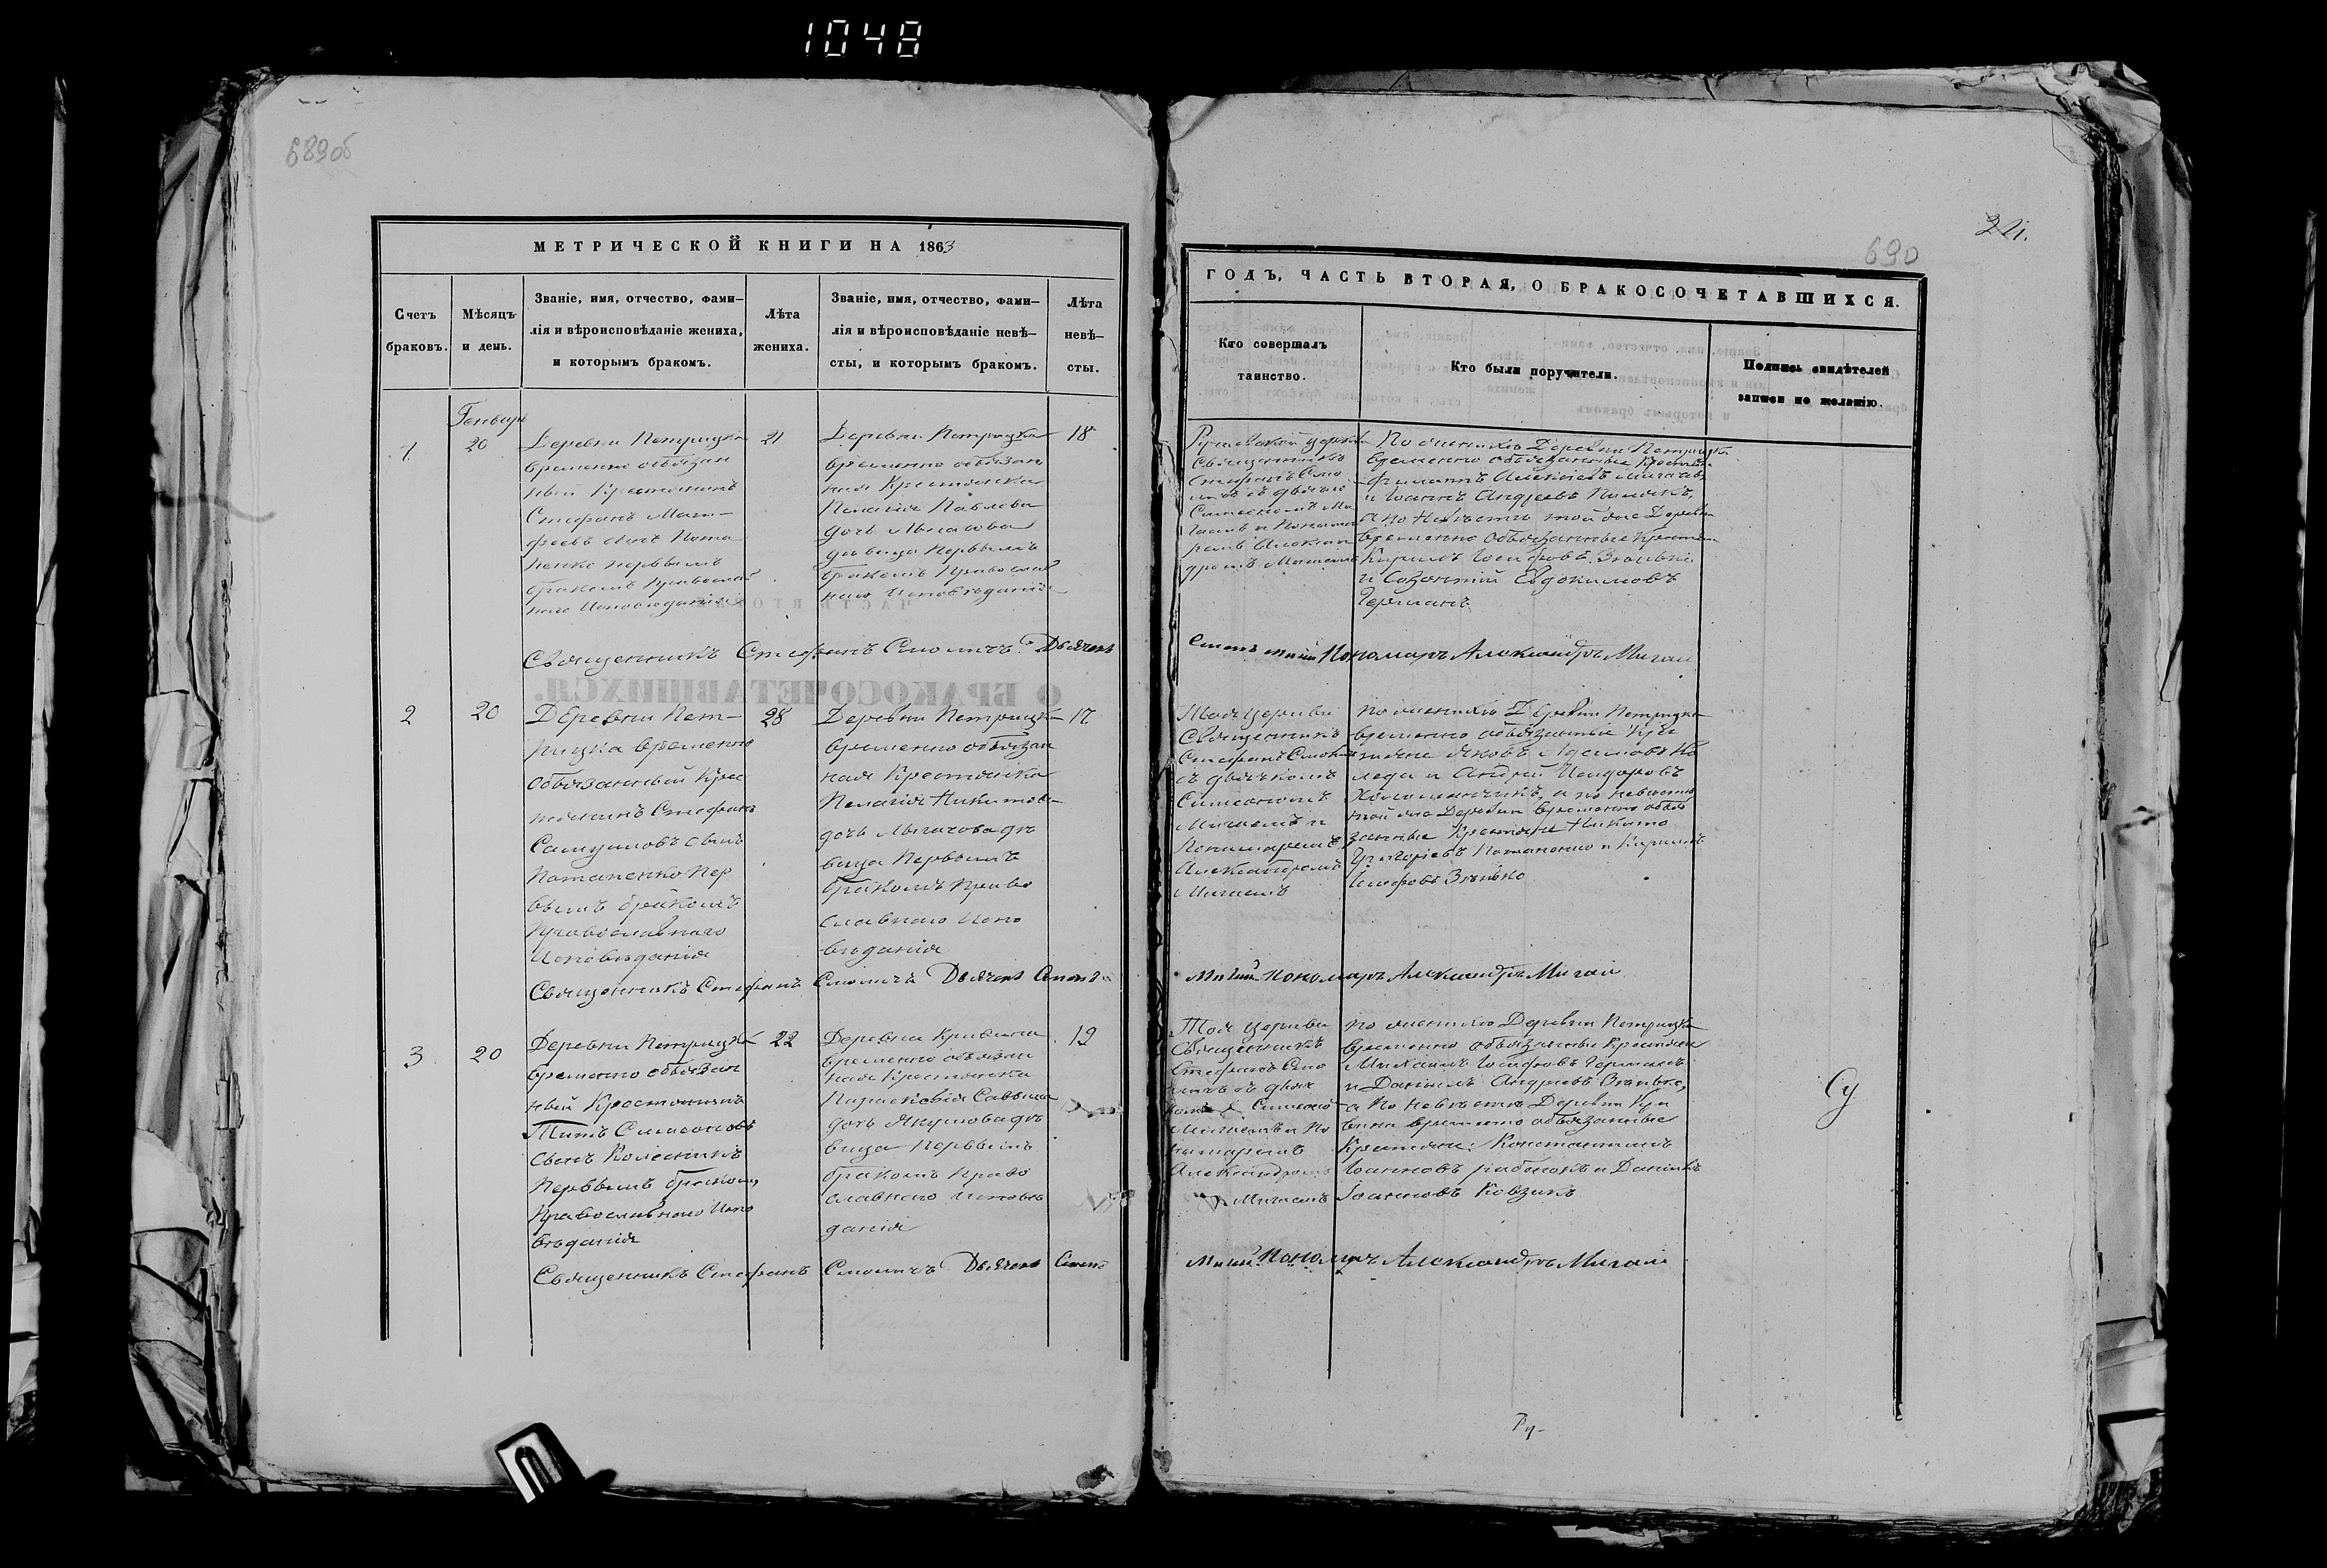 1048
689об
МЕТРИЧЕСКОЙ КНИГИ НА 1863
Счетъ
браковъ.
Мѣсяцъ
и день.
Званіе, имя, отчество, фами-
лія и вѣроисповѣданіе жениха,
и которымъ бракомъ.
Лѣта
жениха.
Званіе, имя, отчество, фами-
лія и вѣроисповѣданіе невѣ-
сты, и которымъ бракомъ.
Лѣта
невѣ-
сты.
1
Генварь
20
Деревни Петрицка
временно обязан
ный Крестьянинъ
Стефанъ Мат-
феевъ сынъ Пота
пенко первымъ
бракомъ Православ
наго Исповѣданія
21
Деревни Петрицка
временно обязан
ная Крестьянка
Пелагія Павлова
дочь
дѣвица Первымъ
бракомъ Православ
наго Исповѣданія
18
Священникъ Стефанъ Смоличъ Дьячекъ
2
20
Деревни Пет-
рицка временно
обязанный Крес
тьянинъ Стефанъ
Самуиловъ сынъ
Потапенко Пер
вымъ бракомъ
Православнаго
Исповѣданія
28
Деревни Петрицка
временно обязан
ная Крестьянка
Пелагія Никитова
дочь дѣ
вица Первымъ
бракомъ Право
славнаго Испо
вѣданія
17
Священникъ Стефанъ Смоличъ Дьячекъ
3
20
Деревни Петрицка
временно обязан
ный Крестьянинъ
Титъ Симеоновъ
сынъ Колесникъ
Первымъ бракомъ
Православнаго Испо
вѣданія
22
Деревни Кривина
временно обязан
ная Крестьянка
Параскевія Саввина
дочь Якимова дѣ
вица Первымъ
бракомъ Право
славнаго Исповѣ
данія
19
Священникъ Стефанъ Смоличъ Дьячекъ
21.
690
ГОДЪ, ЧАСТЬ ВТОРАЯ, О БРАКОСОЧЕТАВШИХСЯ.
Кто совершалъ
таинство.
Кто были поручители.
Подпись свидѣтелей
записи по желанію.
церкви
Священникъ
Стефанъ Смо
личъ съ дьячкомъ
По женихѣ Деревни Петрицка
временно обязанные Крестьяне
и Іоаннъ Андреевъ
а по Невѣстѣ той же Деревни
временно обязанные Крестьяне
Кириллъ Іосифовъ Зѣнько
и Созонтій Евдокимовъ
Германъ
Пономарь Александръ Мигай
Тоя церкви
Священникъ
Стефанъ Смоличъ
съ дьячкомъ
Симеономъ
Мигаемъ и
Пономаремъ
Александромъ
Мигаемъ
по женихѣ Деревни Петрицка
временно обязанные Крес
тьяне Яковъ
и Андрей Исидоровъ
а по невѣстѣ
той же Деревни временно обя
занные Крестьяне Никита
Григоріевъ Потапенко и Кириллъ
Іосифовъ Зѣнько
Мигай Пономарь Александръ Мигай
Тоя церкви
Священникъ
Стефанъ Смо
личъ съ дьяч
комъ Симеоно
Мигаемъ и По
номаремъ
Александромъ
Мигаемъ
по женихѣ Деревни Петрицка
временно обязанные Крестьяне
Михаилъ Іосифовъ Германъ
и Даніилъ Андреевъ Зѣнько,
а по невѣстѣ Деревни Кри
вина временно обязанные
Крестьяне: Константинъ
Іоанновъ и Даніилъ
Іоанновъ Ковзикъ
Мигай Пономарь Александръ Мигай
Су